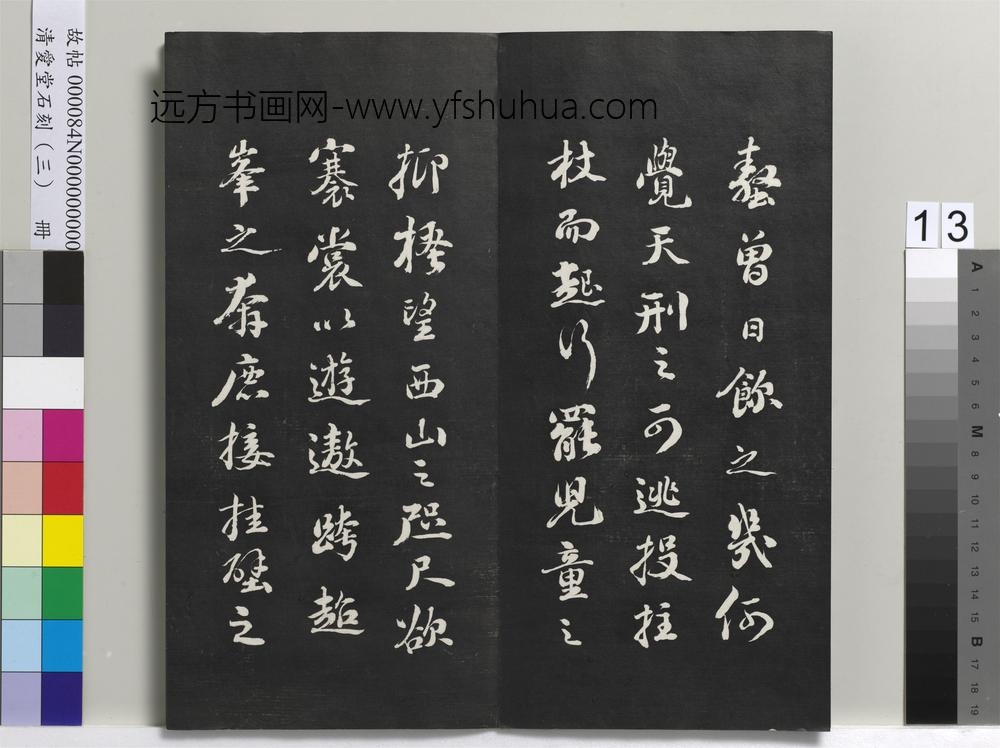 远方书画网-www.yfshuhua.com
故帖 000084N000000000
清愛堂石刻（三） 冊
13
螯曽日飲之幾何
覺天刑之可逃投拄
杖而起行罷児童之
抑搔望西山之咫尺欲
褰裳以遊遨跨超
峯之奔鹿接挂壁之
A 1 2 3 4 5 6 M 8 9 10 11 12 13 14 15 B 17 18 19